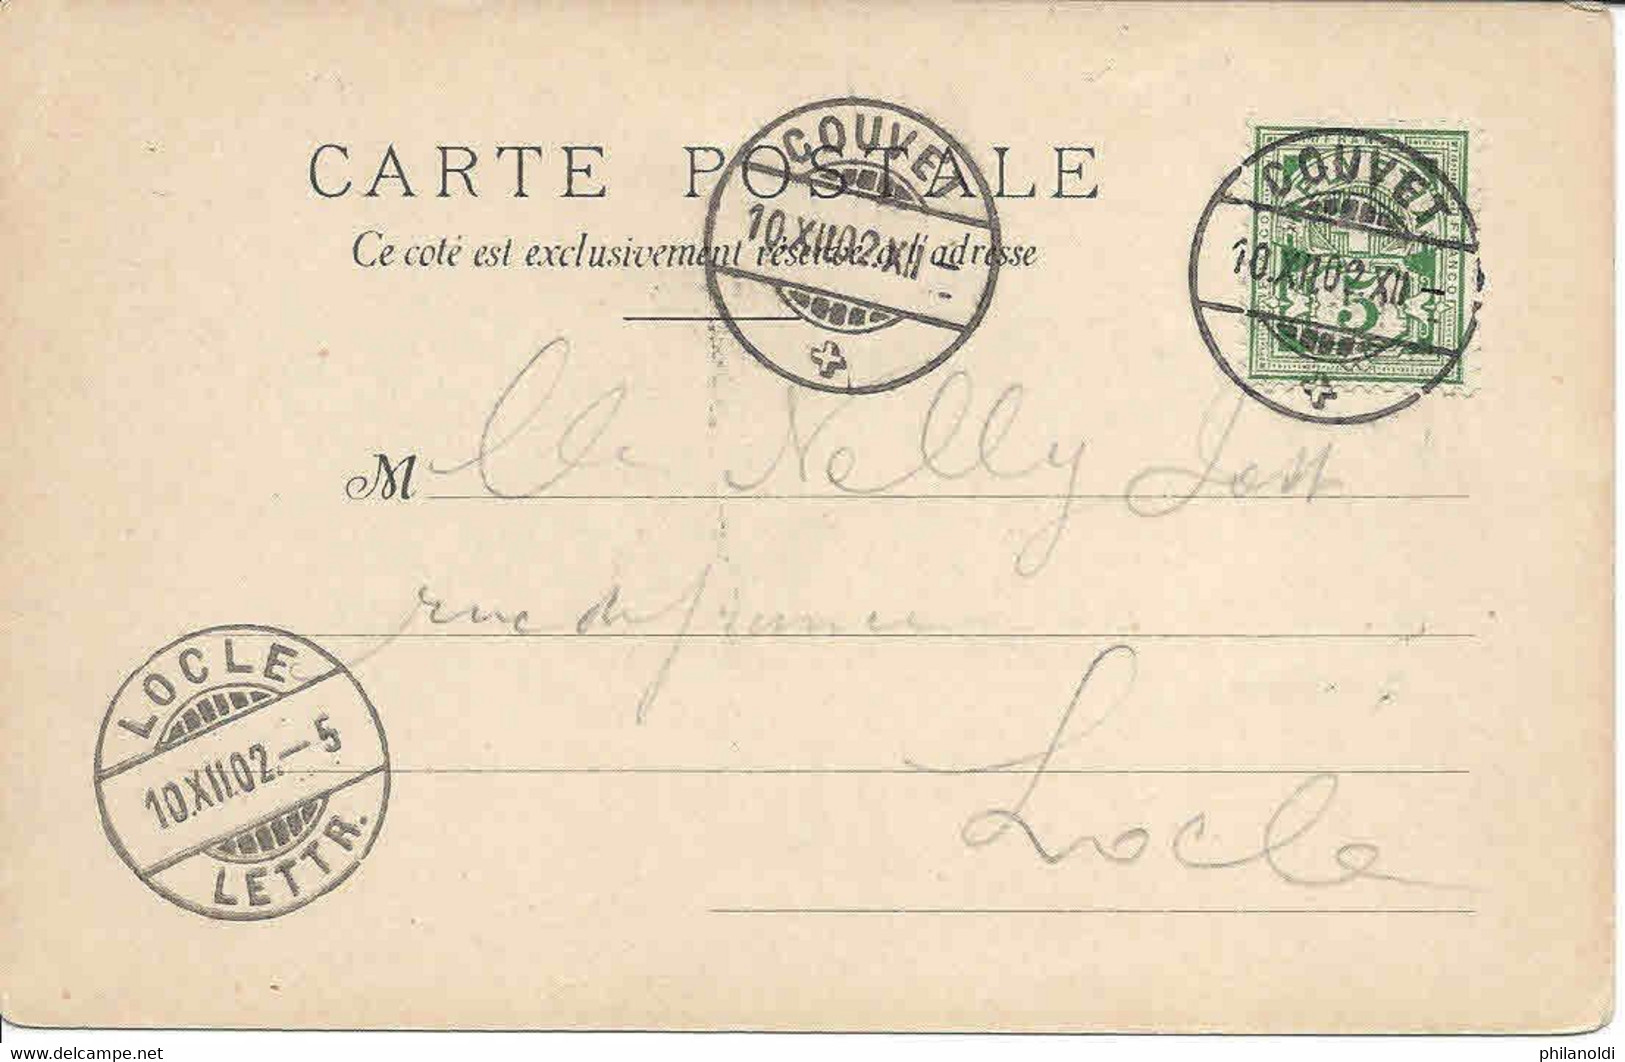 CARTE POSTALE
Ce coté est exclusivement réservé à l'adresse
COUVET
10.XII.02.XII –
COUVET
10.XII.02.XII –
5
FRANCO
M lle Nelly
rue de france
Locle
LOCLE
10.XII.02.–5
LETTR.
philanoldi
delcampe.net